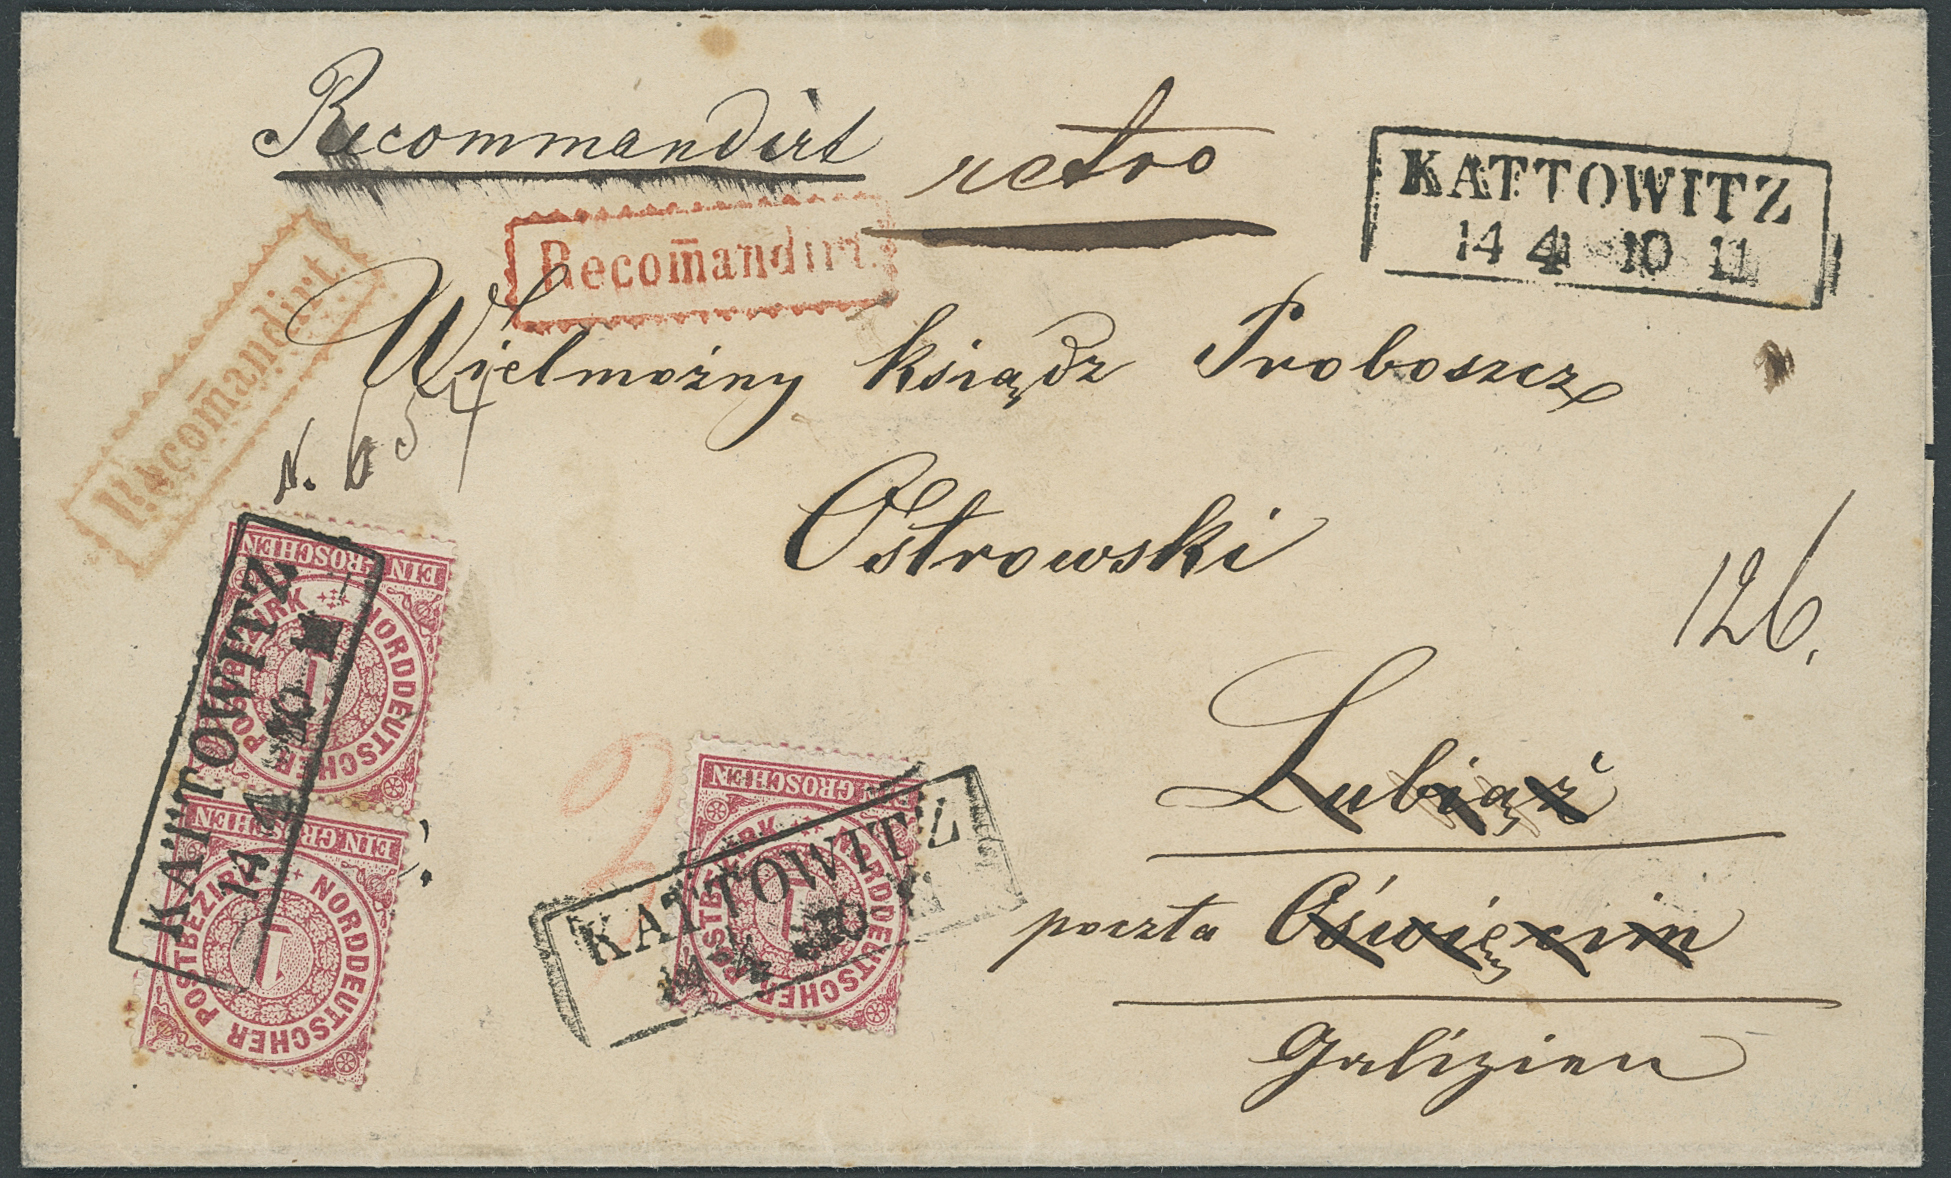 Recommandirt
retro
KATTOWITZ
14 4 10 11
Recom̄andirt
Recom̄andirt
Wielmożny ksiądz Proboszcz
N. 654
Ostrowski
126.
Lubiąż
poczta Oświęcim
Galizien
EIN GROSCHEN
NORDDEUTSCHER POSTBEZIRK
1
KATTOWITZ
14 4 10
EIN GROSCHEN
NORDDEUTSCHER POSTBEZIRK
1
2
EIN GROSCHEN
NORDDEUTSCHER POSTBEZIRK
1
KATTOWITZ
14 4 10 11